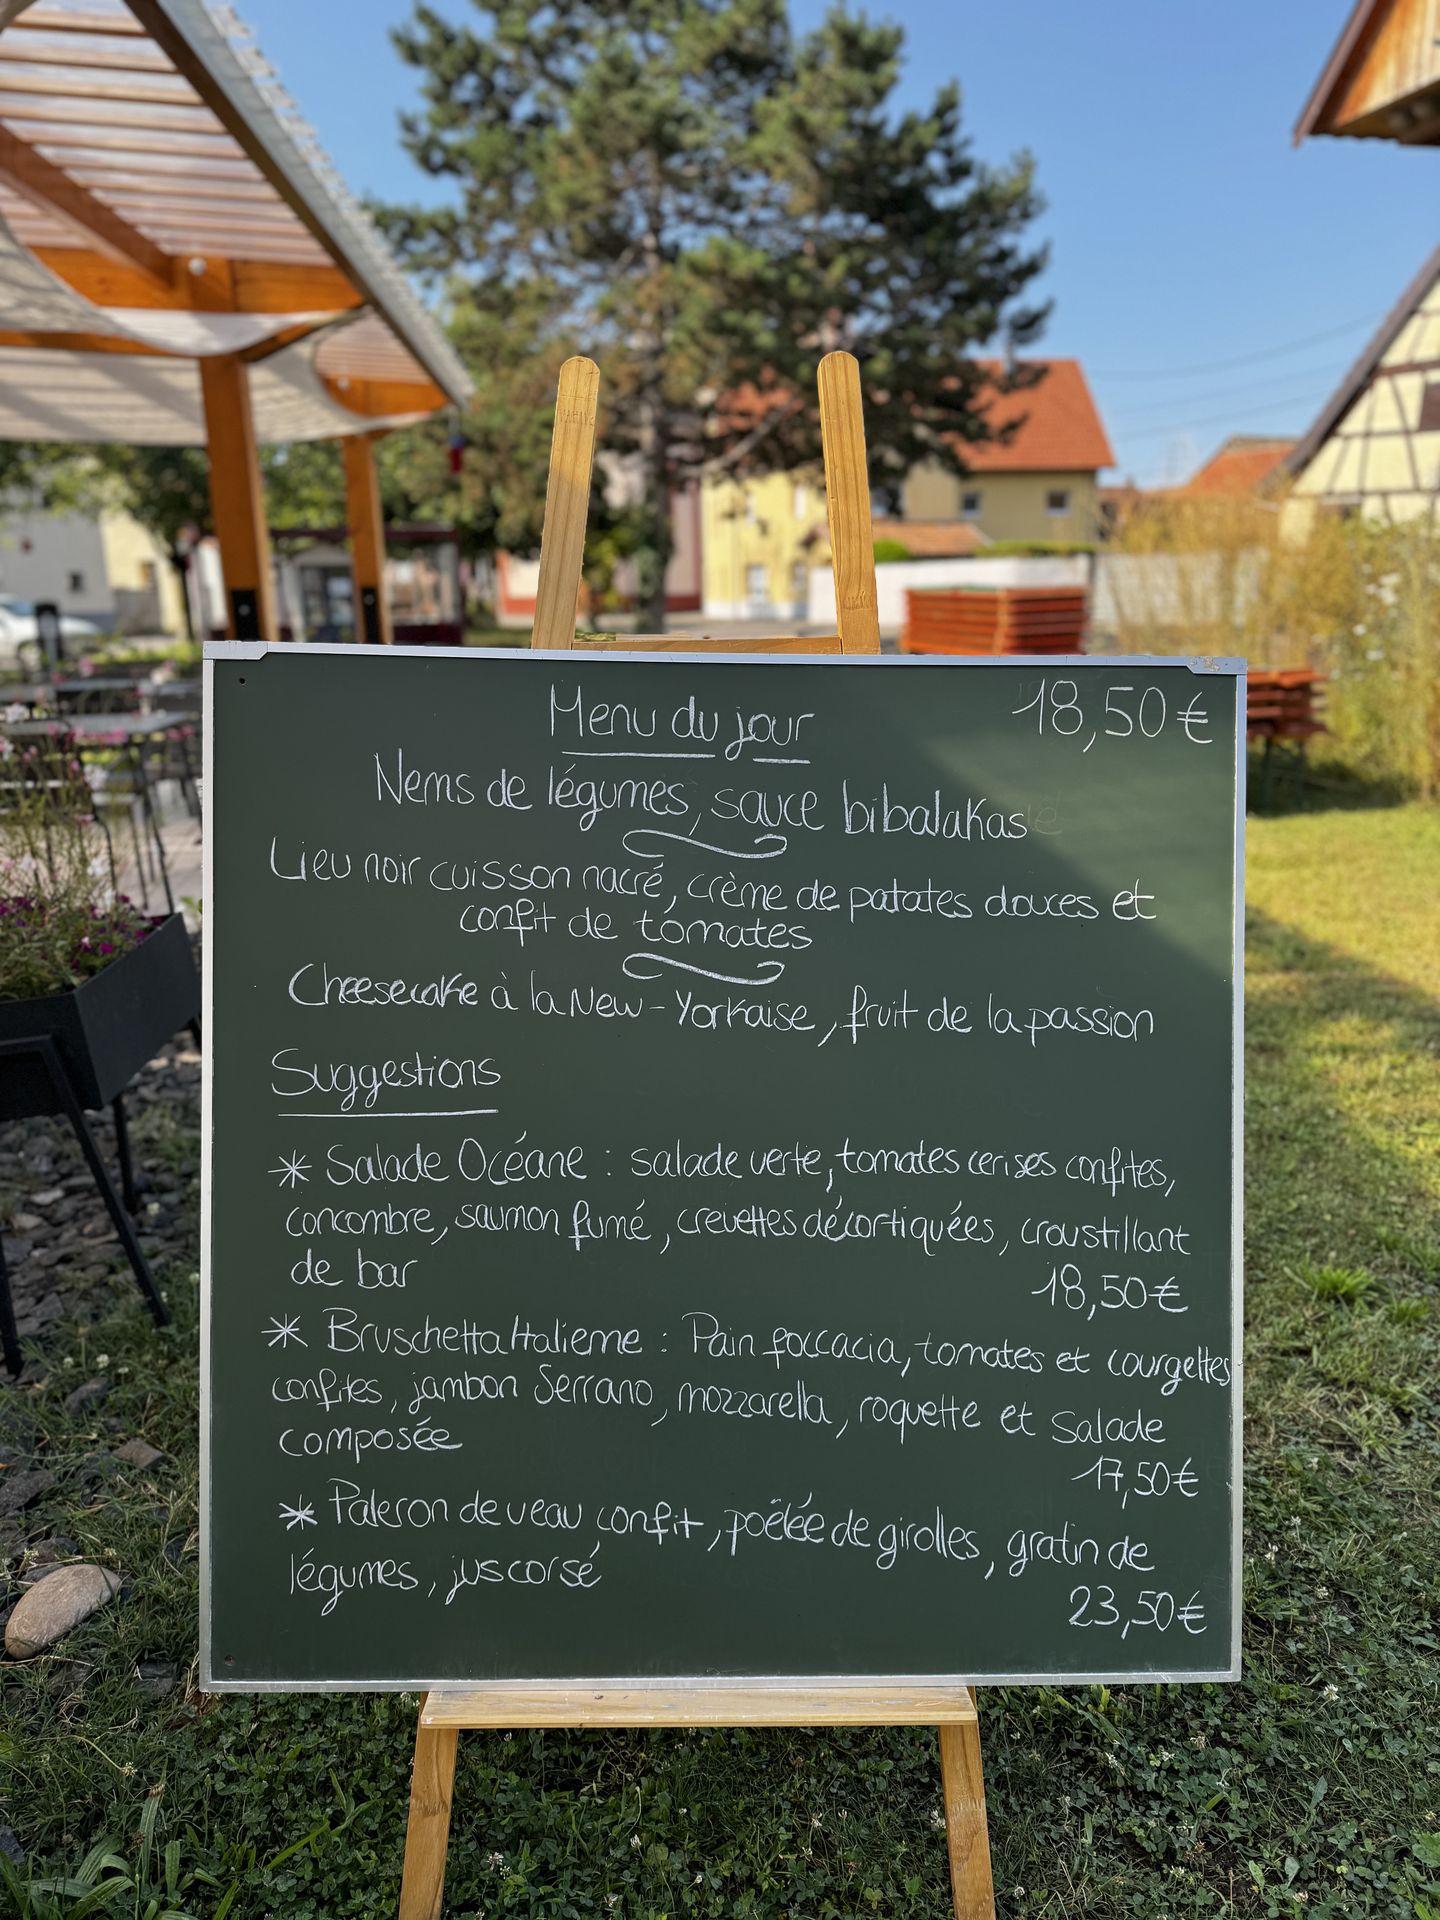 Menu du jour 18,50€
Nems de légumes, sauce bibalakas
Lieu noir cuisson nacré, crème de patates douces et
confit de tomates
Cheesecake à la New-Yorkaise, fruit de la passion
Suggestions
* Salade Océane : salade verte, tomates cerises confites,
concombre, saumon fumé, crevettes décortiquées, croustillant
de bar
18,50€
* Bruschetta Italienne : Pain foccacia, tomates et courgettes
confites, jambon Serrano, mozzarella, roquette et salade
composée
17,50€
* Paleron de veau confit, poêlée de girolles, gratin de
légumes, jus corsé
23,50€